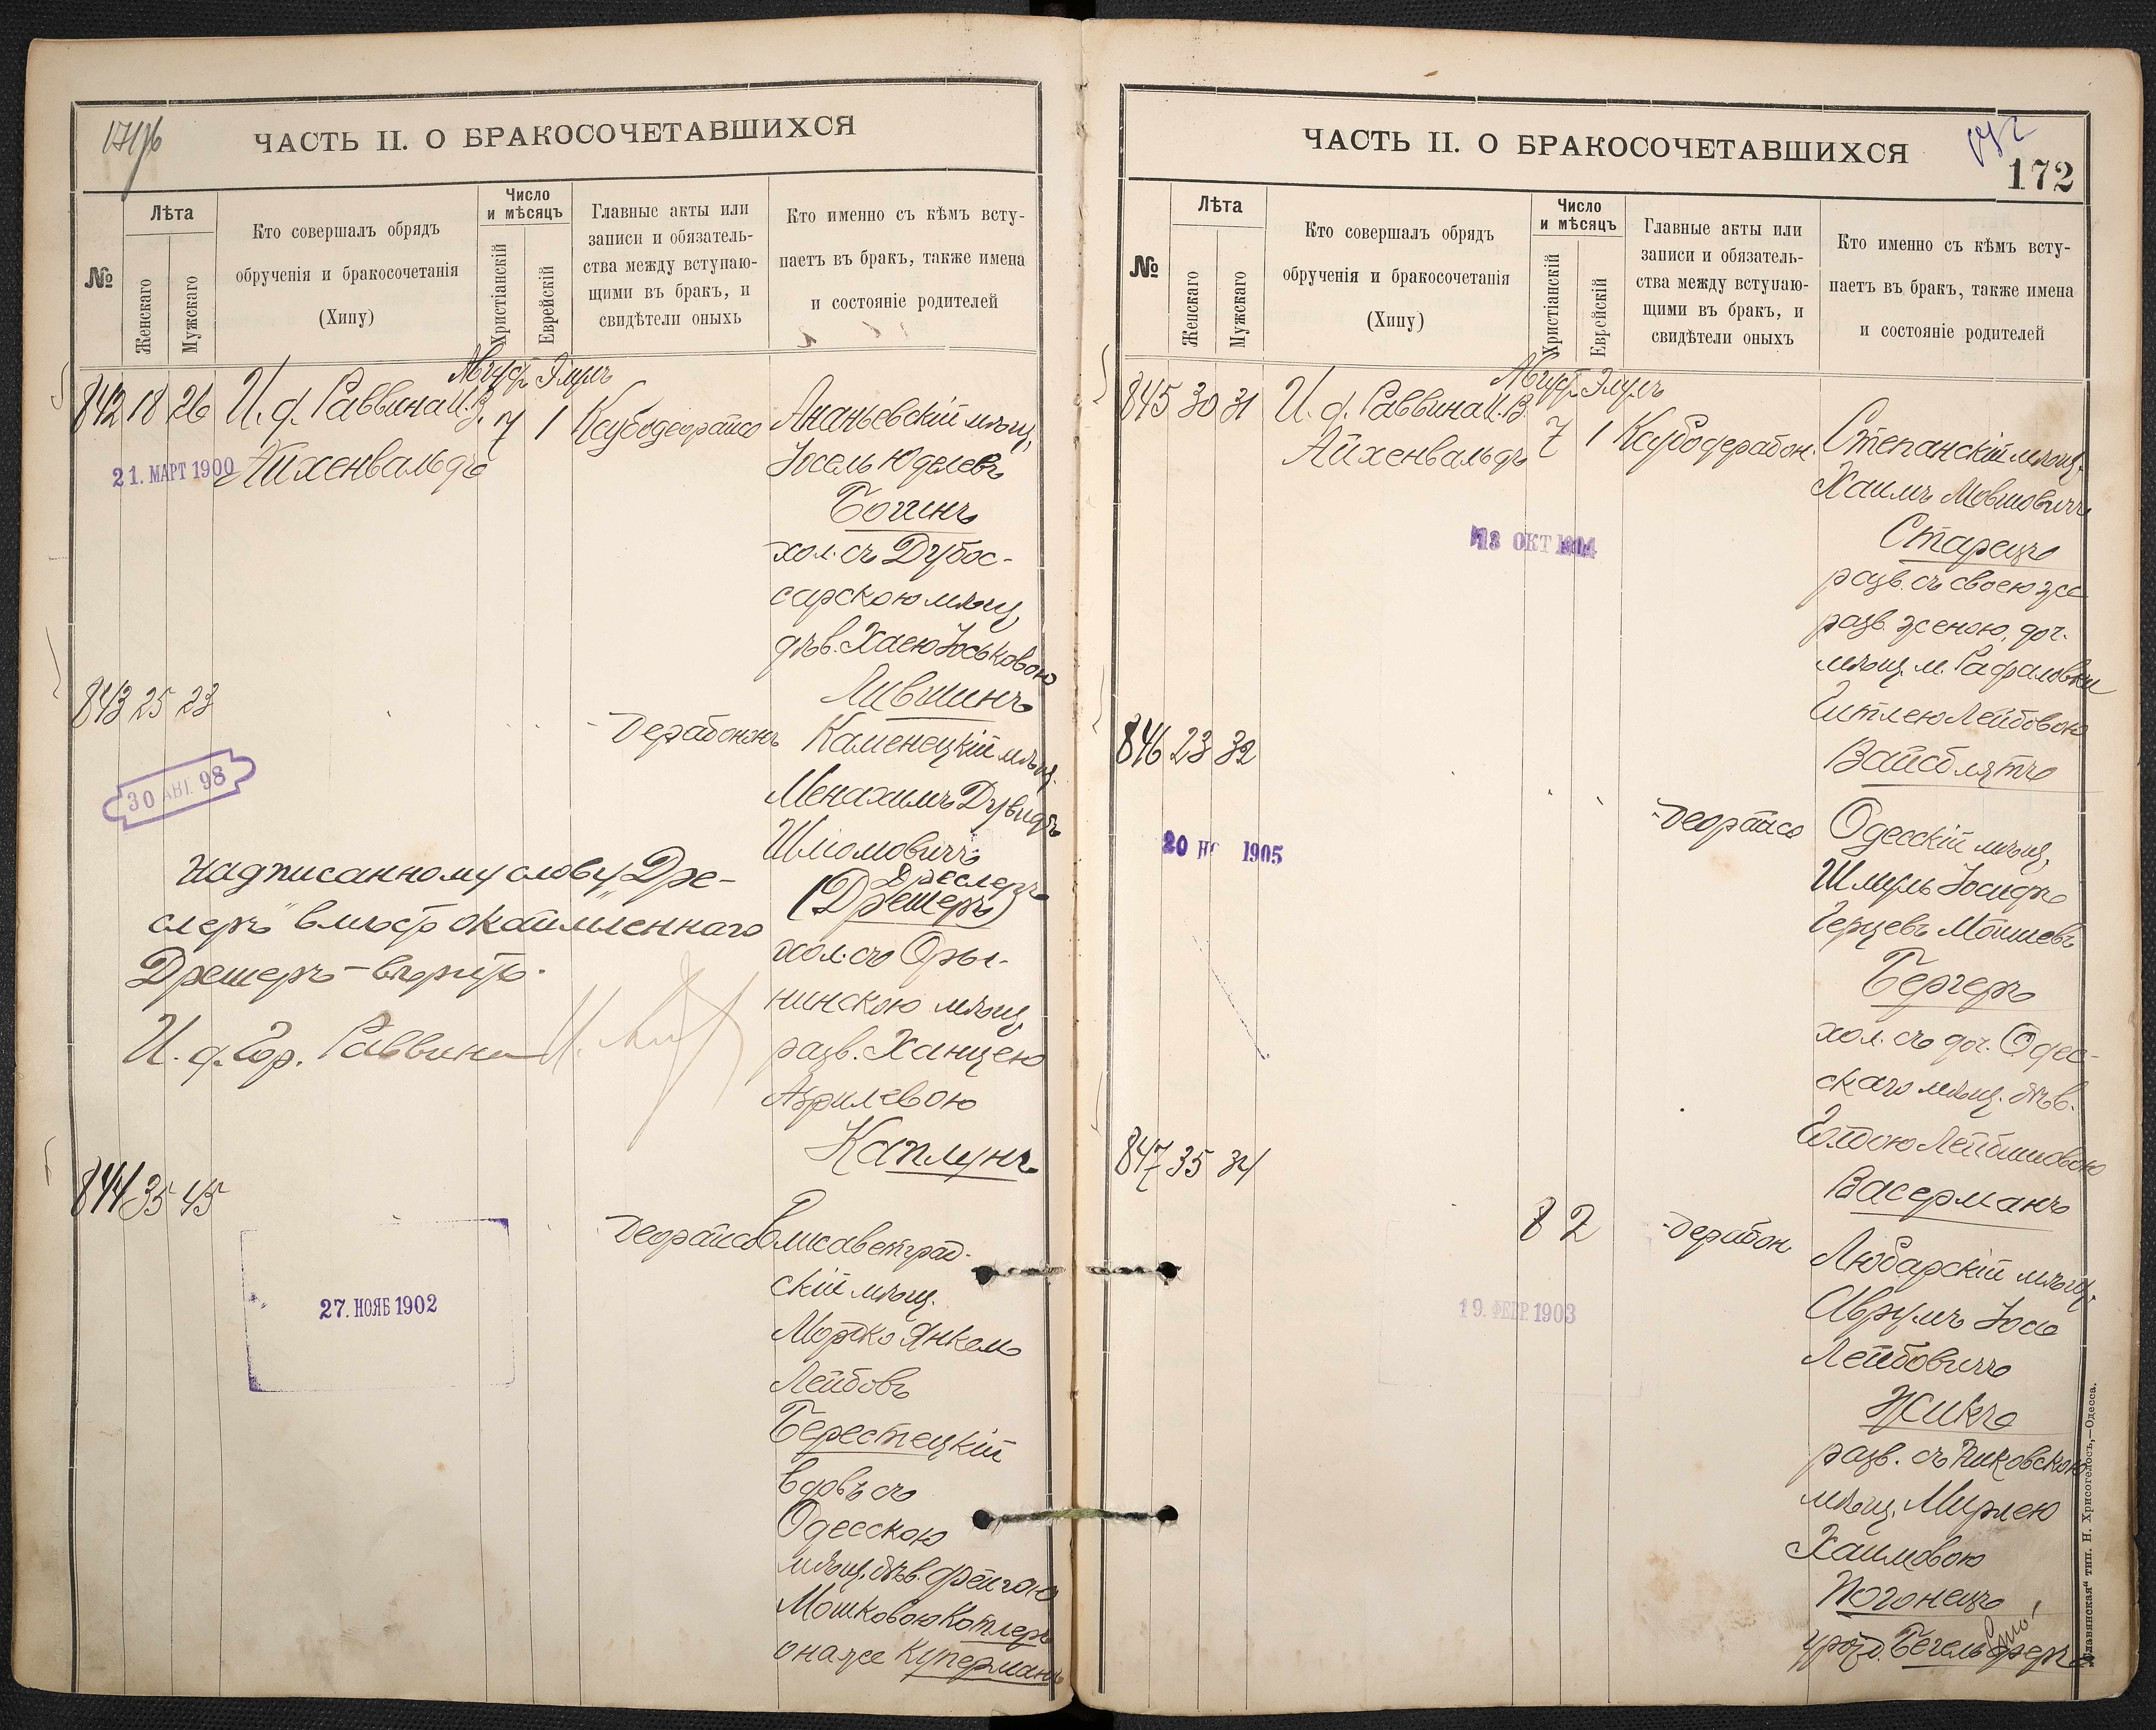 171 об
ЧАСТЬ II. О БРАКОСОЧЕТАВШИХСЯ
№
Лѣта
Женскаго
Мужскаго
Кто совершалъ обрядъ
обрученія и бракосочетанія
(Хипу)
Число
и мѣсяцъ
Христіанскій
Еврейскій
Главные акты или
записи и обязатель-
ства между вступаю-
щими въ бракъ, и
свидѣтели оныхъ
Кто именно съ кѣмъ всту-
паетъ въ бракъ, также имена
и состояніе родителей
Август Элулъ
842 18 26 И. д. Раввина И. В. 7 1 Ксубодеорайсо
Айхенвальдъ
21. МАРТ 1900
Ананьевскій мѣщ,
Іосель Юделевъ
Богинъ
хол. съ Дубос-
сарскою мѣщ,
дѣв. Хаею Іоськовою
Лившинъ
843 25 23
-Дерабононъ
30 АВГ. 98
Каменецкій мѣщ.
Менахимъ Дувидъ
Шліомовичъ
Дреслеръ
(Дрешеръ)
хол. съ Оры-
нинскою мѣщ,
разв. Ханцею
Азрилевою
Каплунъ
Надписанному слову "Дре-
слеръ" вмѣсто окаймленнаго
Дрешеръ - вѣрить.
И. д. Гор. Раввина
844 35 45
-Деорайсо
27. НОЯБ 1902
Елисаветград-
скій мѣщ.
Мортко Янкель
Лейбовъ
Берестецкій
вдовъ съ
Одесскою
мѣщ, дѣв. Фейгою
Мошковою Котлеръ
она же Куперманъ
ЧАСТЬ II. О БРАКОСОЧЕТАВШИХСЯ
172
172
№
Лѣта
Женскаго
Мужскаго
Кто совершалъ обрядъ
обрученія и бракосочетанія
(Хипу)
Число
и мѣсяцъ
Христіанскій
Еврейскій
Главные акты или
записи и обязатель-
ства между вступаю-
щими въ бракъ, и
свидѣтели оныхъ
Кто именно съ кѣмъ всту-
паетъ въ бракъ, также имена
и состояніе родителей
Август Элулъ
845 30 31 И. д. Раввина И. В. 7 1 Ксубодерабон.
Айхенвальдъ
13 ОКТ 1904
Степанскій мѣщ,
Хаимъ Мовшовичъ
Старецъ
разв. съ своею же
разв. женою, доч.
мѣщ. м. Рафаловки
Гитлею Лейбовою
Вайсблятъ
846 23 32
-Деорайсо
20 НО 1905
Одесскій мѣщ,
Шмуль Іосифъ
Герцевъ Мошневъ
Бергеръ
хол. съ доч. Одес-
скаго мѣщ. дѣв.
Голдою Лейбишовою
Васерманъ
847 35 34
8 2
-Дерабон
19. ФЕВР. 1903
Любарскій мѣщ,
Аврумъ Іось
Лейбовичъ
Жикъ
разв. съ Пиковскою
мѣщ, Мирлею
Хаимовою
Погонецъ
урожд. Бегельферъ
„Славянская“ тип. Н. Хрисогелосъ,—Одесса.